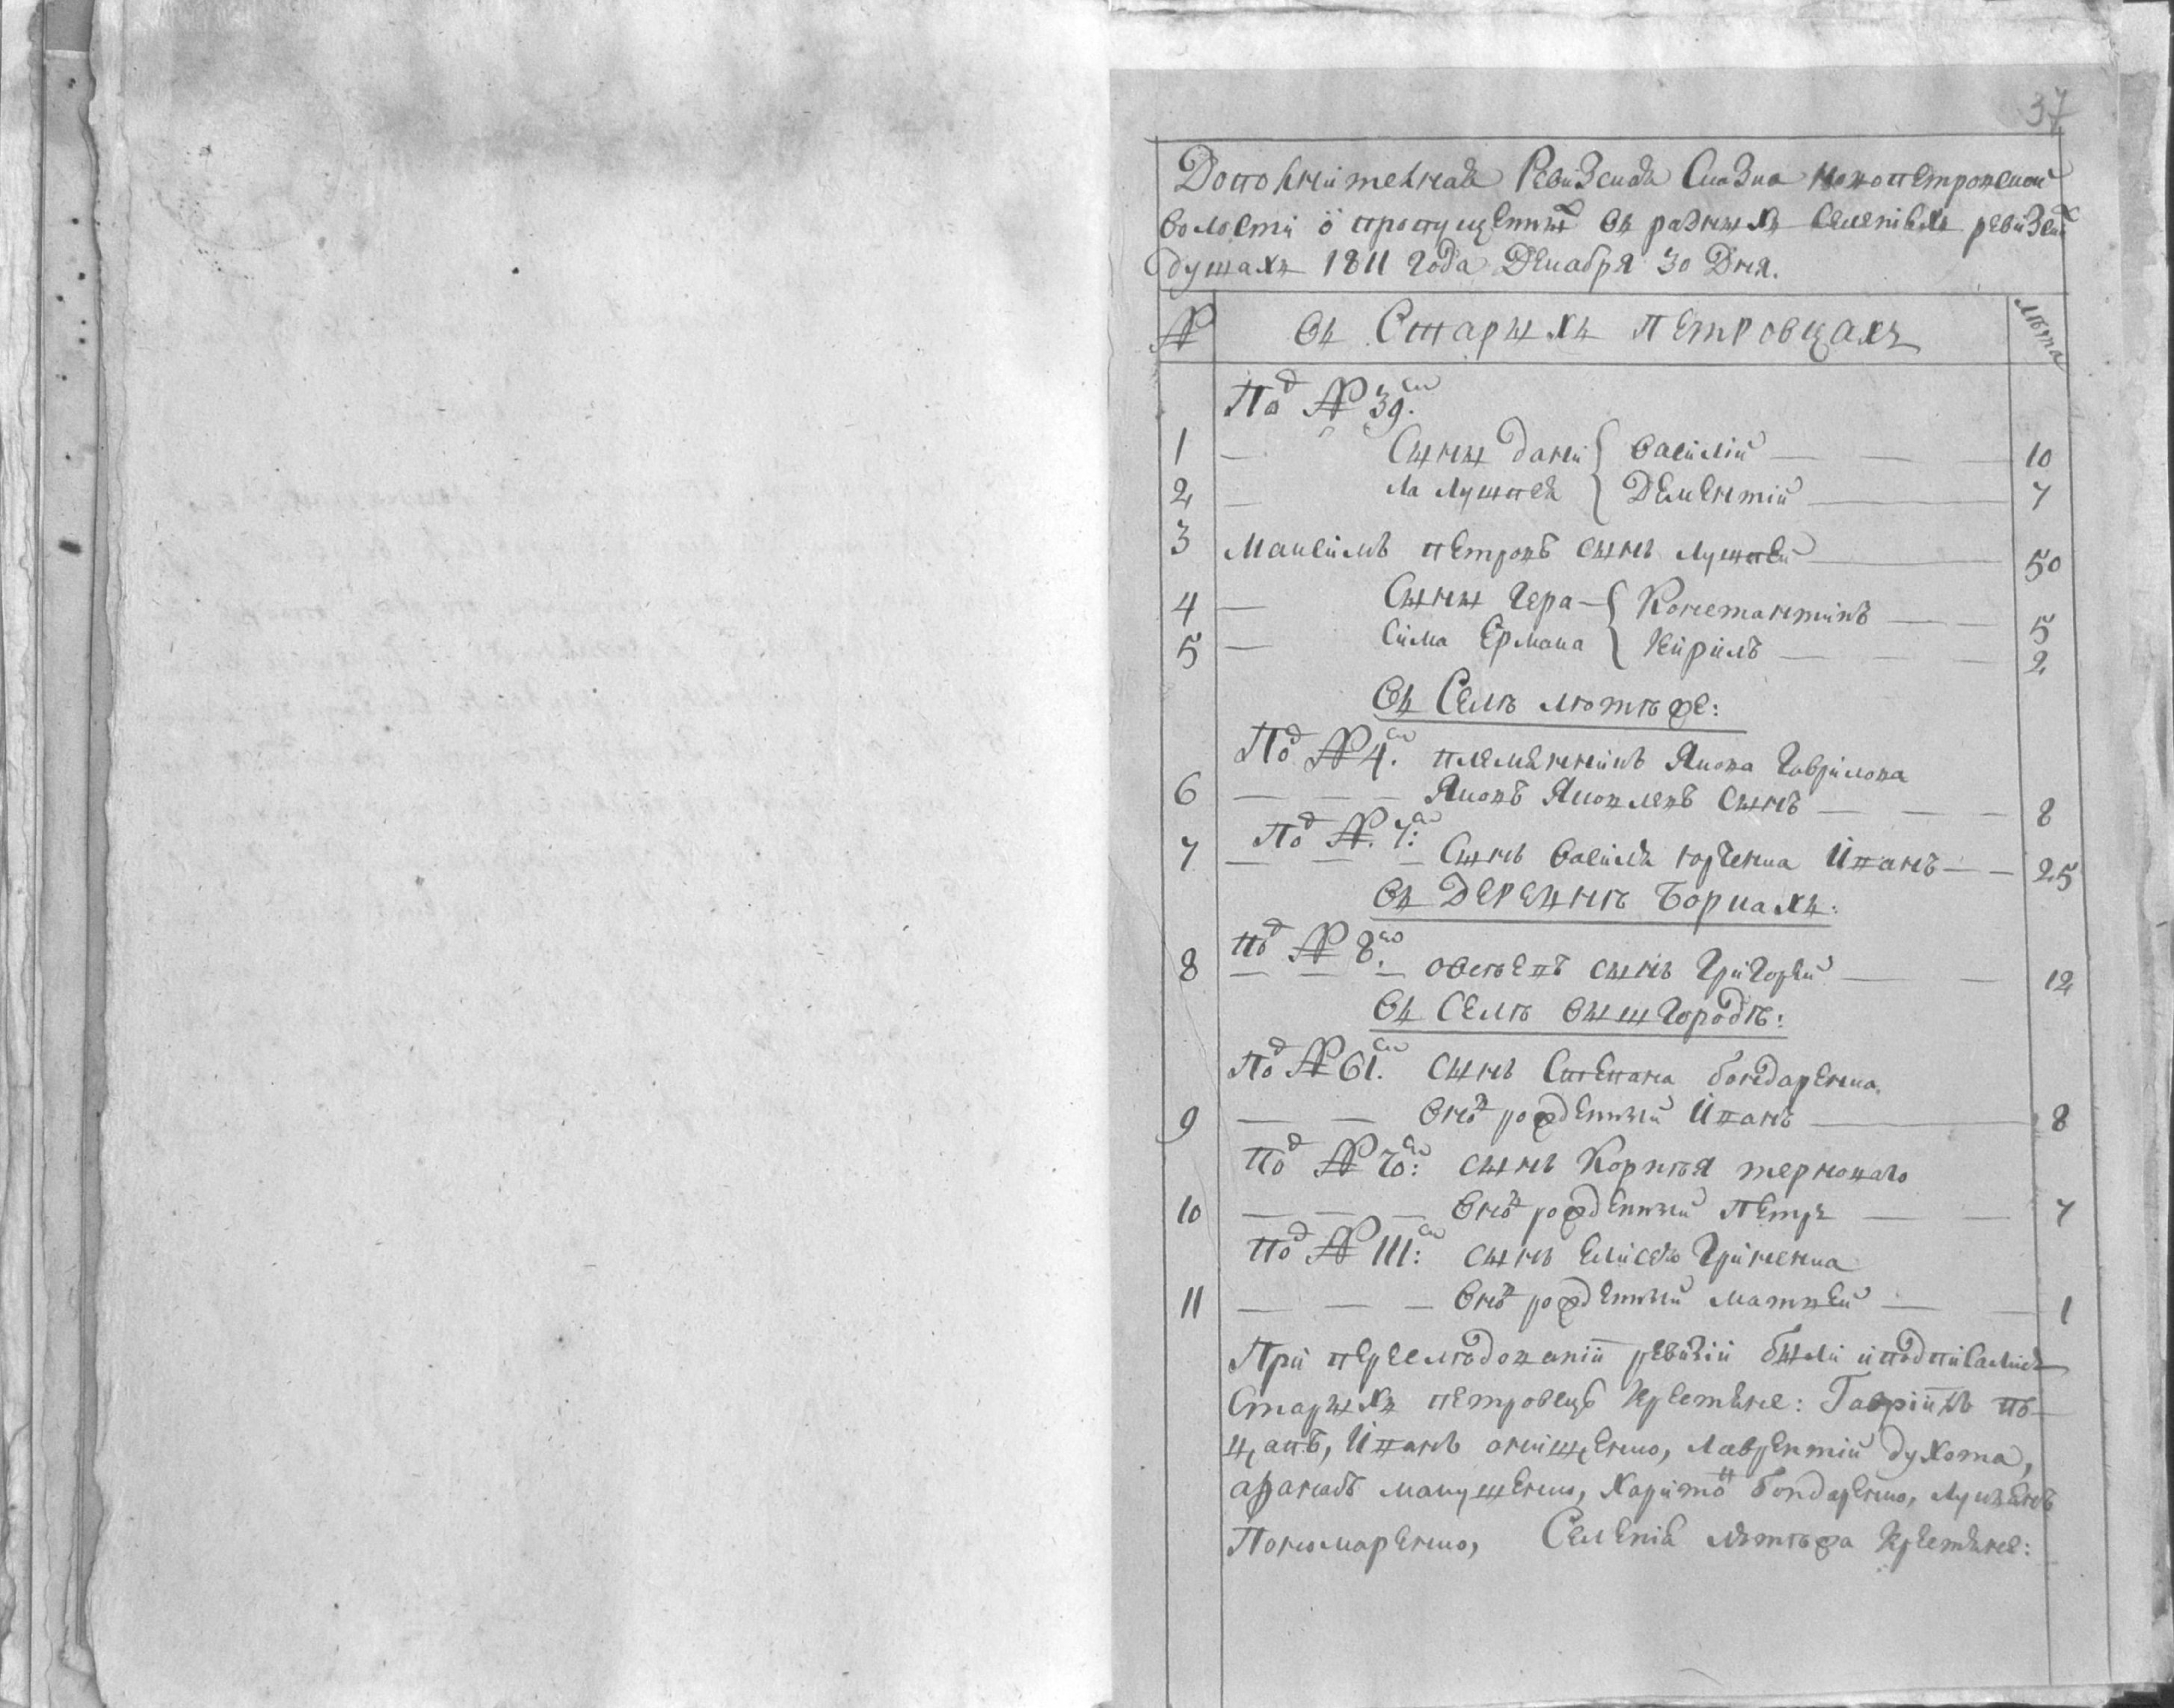 37
Дополнителная Ревизская Сказка новопетровской
волости о пропущенных въ разныхъ селенияхъ ревизских
душахъ 1811 года Декабря 30 Дня.
№ Въ Старыхъ Петровцахъ лѣта
Под № 39.
1 — Сыны Дани{ Василий — — — 10
2 — ла Лушпея { Дементий — 7
3 Максимъ Петровъ сынъ Лушпей — 50
4 — Сыны Гера-{ Константинъ — — 5
5 — сима Ермака { Кирилъ — — — 2
Въ Селѣ Лютѣже:
Под № 4. племянникъ Якова Гаврилова
6 — — — Яковъ Яковлевъ сынъ — — — 8
Под № 7:
7 — — — Сынъ Василя Юрченка Иванъ — — 25
Въ Деревнѣ Боркахъ:
Под № 8.
8 — — — Овсѣевъ сынъ Григорей — — 12
Въ Селѣ Вышгородѣ:
Под № 61. сынъ Степана бондаренка
9 — — внов рожденный Иванъ — 8
Под № 70: сынъ Корнѣя терноваго
10 — — — внов рожденный Петръ — — 7
Под № 111: сынъ Елисея Гринченка
11 — — — внов рожденный Матвей — — 1
При переслѣдованіи ревизіи были и подписались
Старыхъ петровецъ крестяне: Гавріилъ
Иванъ Лаврентий духота,
Харитон Бондаренко,
Пономаренко, Селения лютѣжа крестяне: